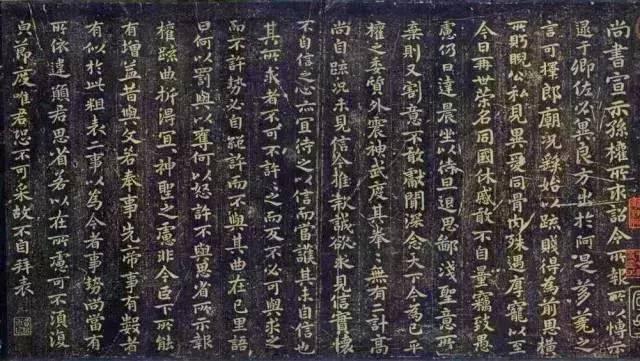 尚書宣示孫權所求詔令所報所以博示
逮于卿佐必冀良方出於阿是芻蕘之
言可擇郎廟況繇始以疏賤得為前恩橫
所盻睨公私見異愛同骨肉殊遇厚寵以至
今日再世榮名同國休慼敢不自量竊致愚
慮仍日達晨坐以待旦退思鄙淺聖意所
棄則又割意不敢獻聞深念天下今為已平
權之委質外震神武度其拳拳無有二計高
尚自疏況未見信今推款誠欲求見信實懷
不自信之心亦宜待之以信而當護其未自信也
其所求者不可不許許之而反不必可與求之
而不許勢必自絕許而不與其曲在己里語
曰何以罰與以奪何以怒許不與思省所示報
權疏曲折得宜宜神聖之慮非今臣下所能
有增益昔與文若奉事先帝事有數者
有似於此粗表二事以為今者事勢尚當有
所依違願君思省若以在所慮可不須復
貌節度唯君恐不可采故不自拜表